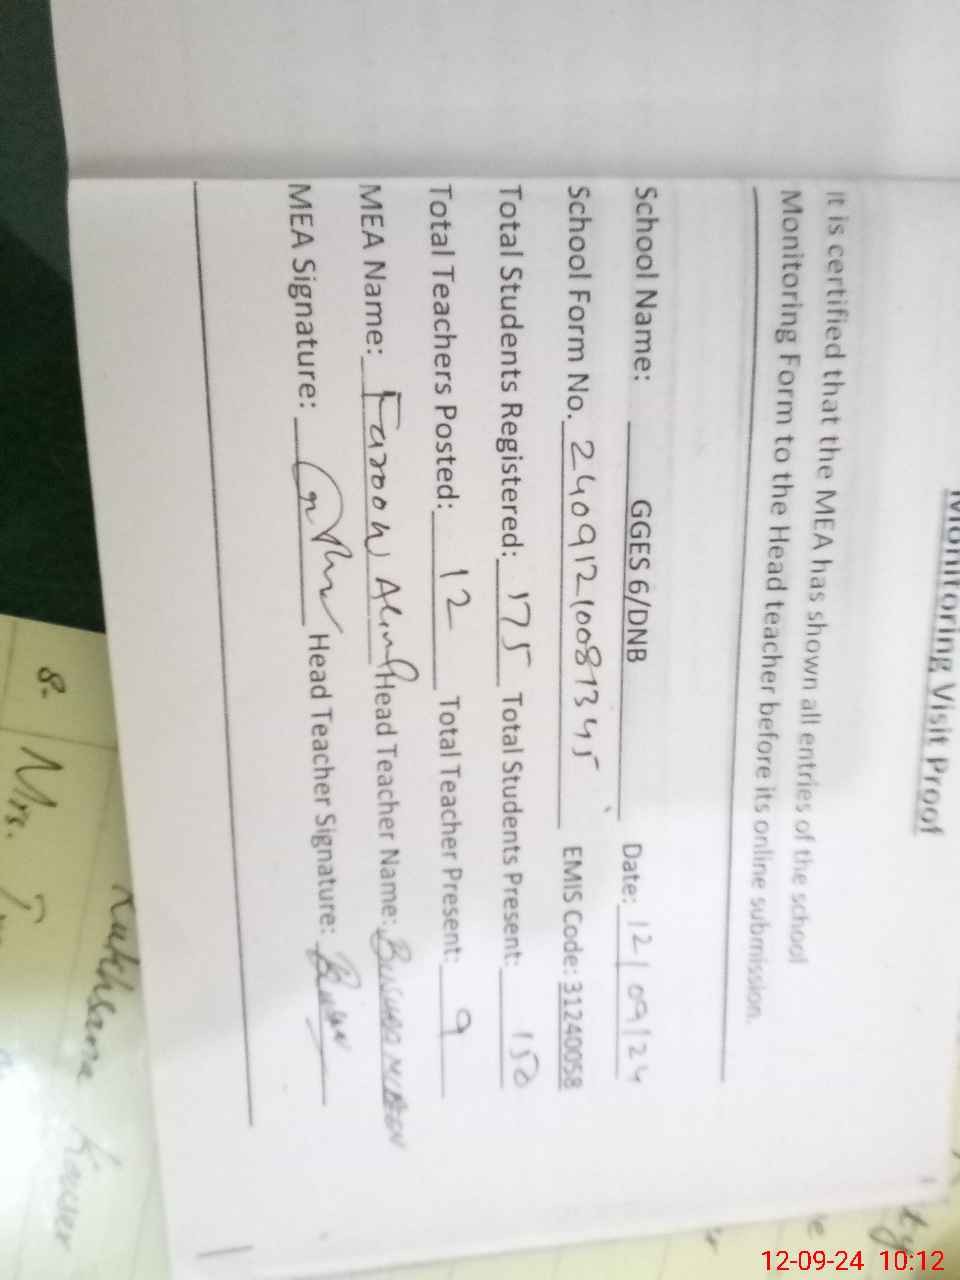 Monitoring Visit Proof
It is certified that the MEA has shown all entries of the school
Monitoring Form to the Head teacher before its online submission.
School Name: GGES 6/DNB Date: 12/09/24
School Form No. 24091210081345 EMIS Code: 31240058
Total Students Registered: 175 Total Students Present: 150
Total Teachers Posted: 12 Total Teacher Present: 9
MEA Name: Farooh Head Teacher Name:
MEA Signature: Head Teacher Signature:
Rukhsana Kauser
8. Mrs.
12-09-24 10:12